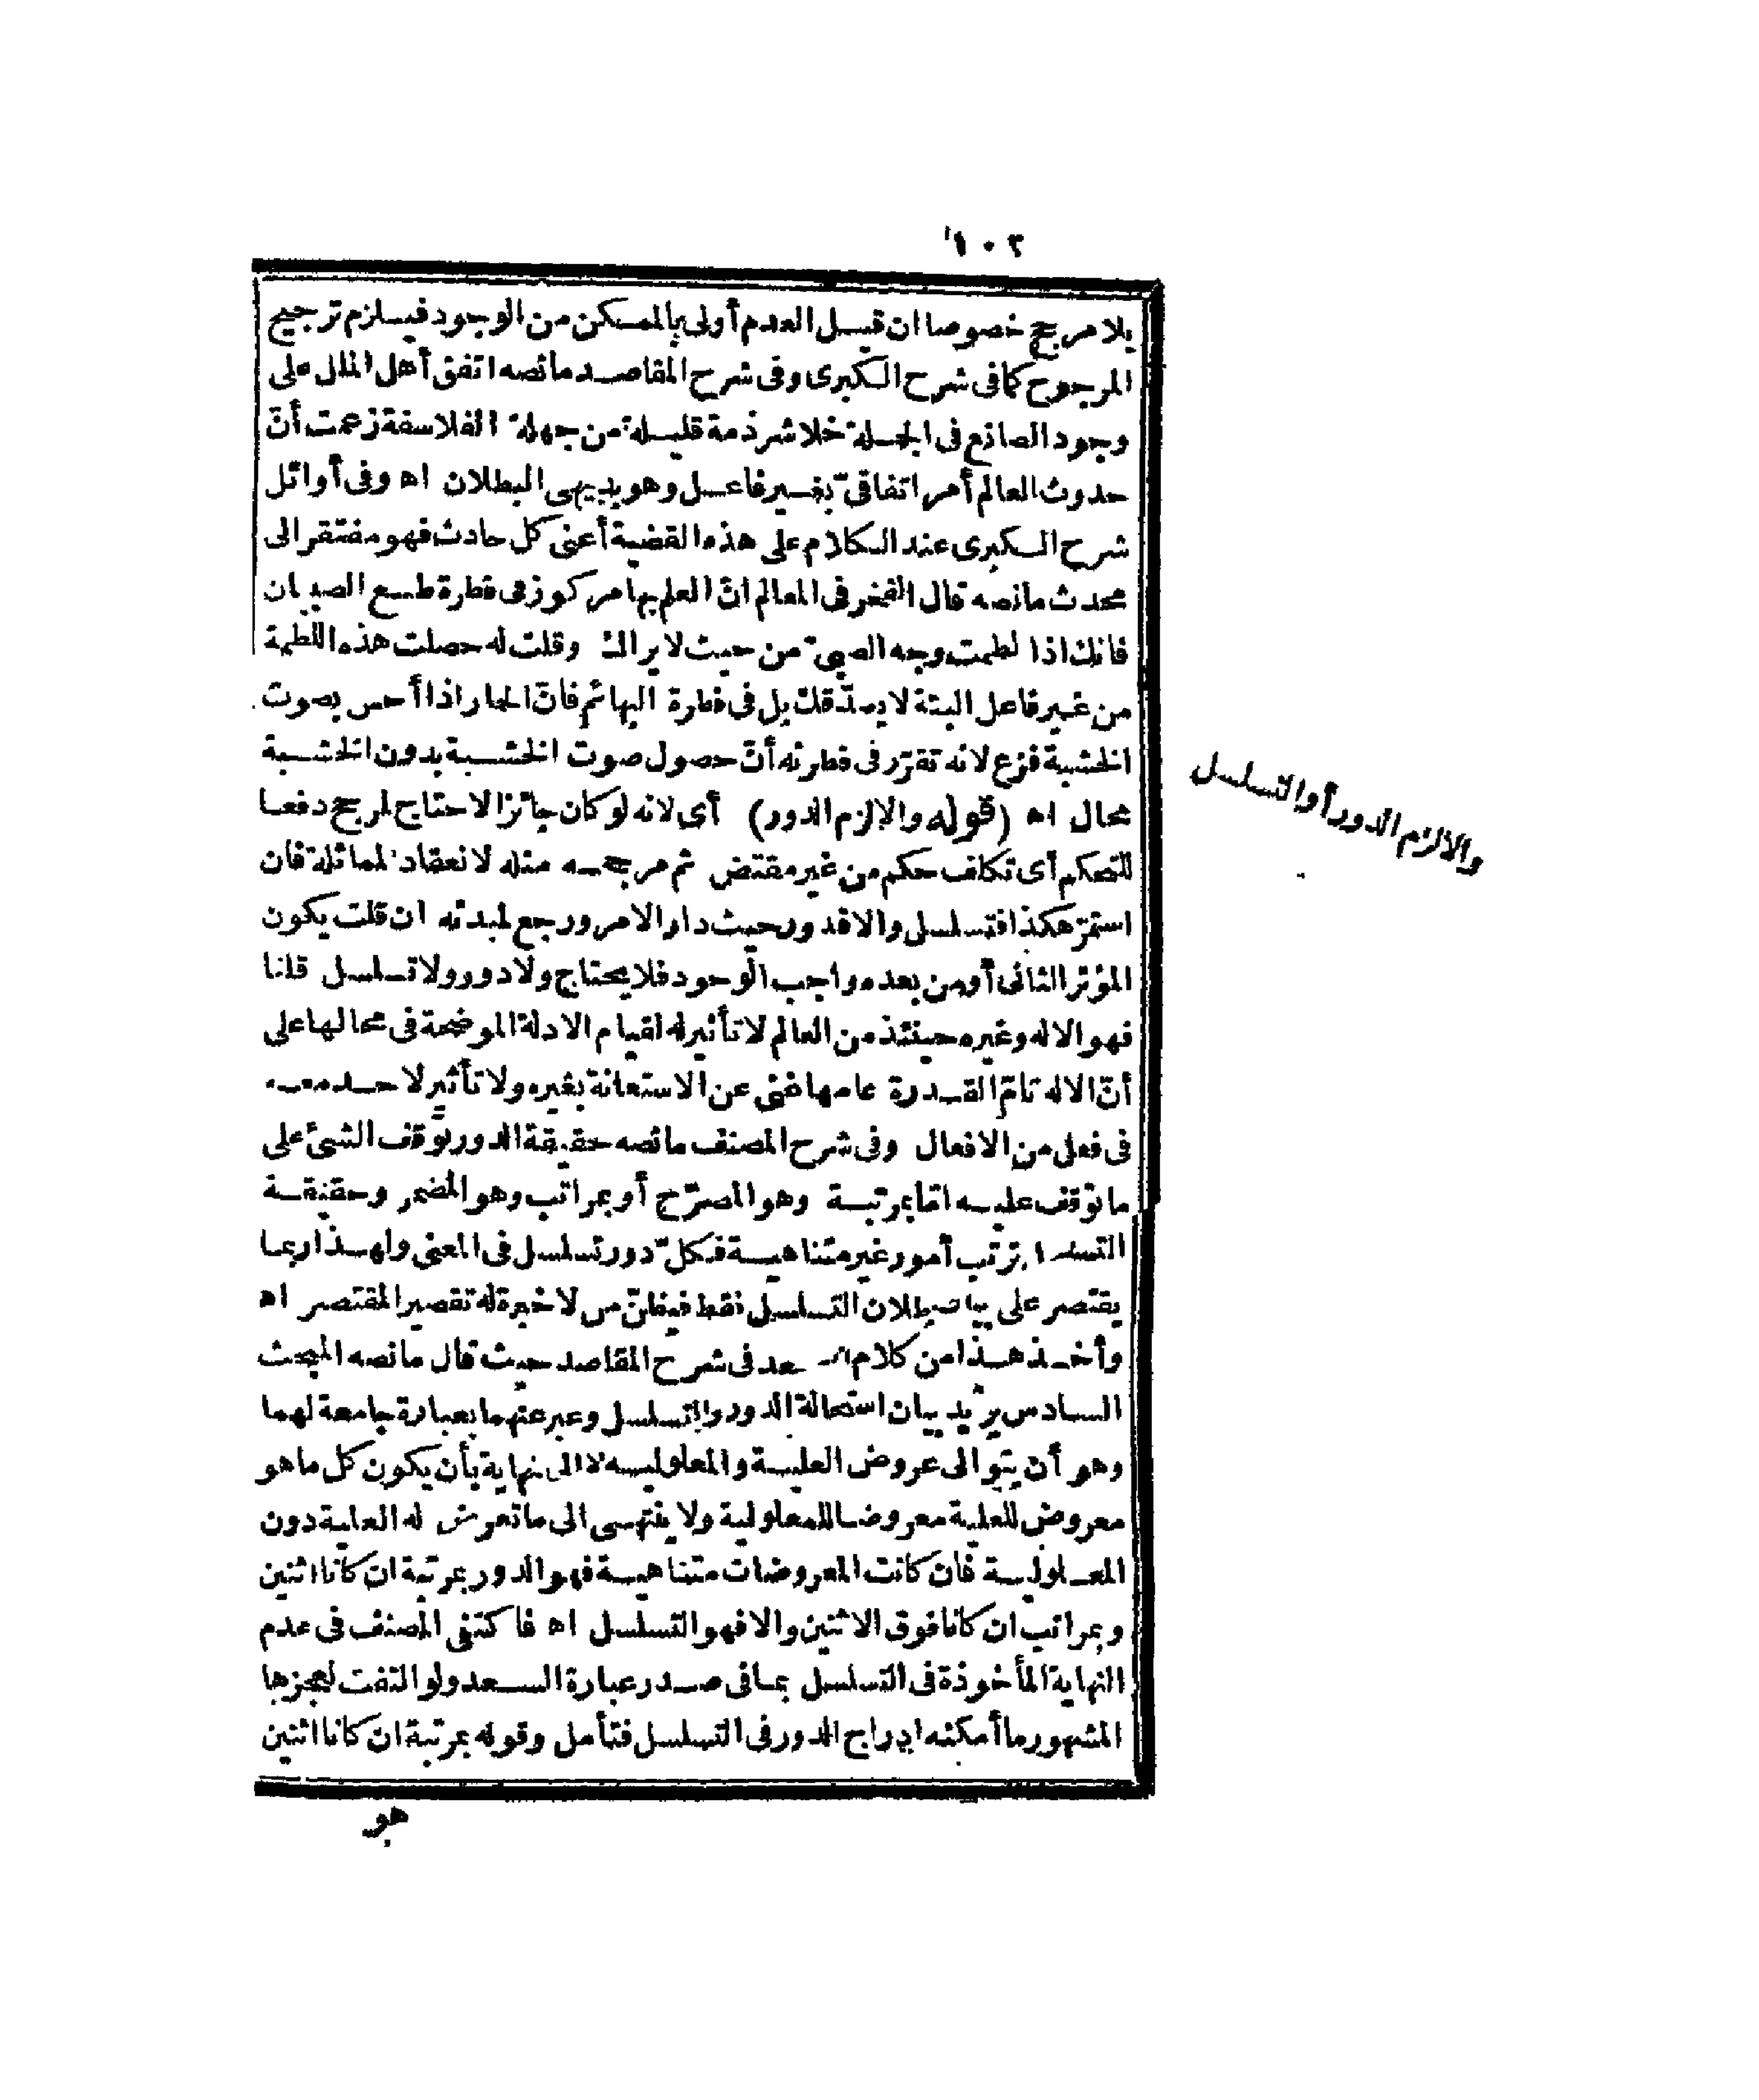 ١٠٢
بلا مرجح خصوصا ان قيل العدم أولى بالممكن من الوجود فيلزم ترجيح
المرجوح كما فى شرح الكبرى وفى شرح المقاصد مانصه اتفق أهل الملل على
وجود الصانع فى الجملة خلا شرذمة قليلة من جهلة الفلاسفة زعمت أنّ
حدوث العالم أمر اتفاقىّ بغير فاعل وهو بديهى البطلان اه وفى أوائل
شرح الكبرى عند الكلام على هذه القضية أعنى كل حادث فهو مفتقر الى
محدث مانصه قال الفخر فى المعالم انّ العلم بها مركوز فى فطرة طبع الصبيان
فانك اذا لطمت وجه الصبىّ من حيث لا يراك وقلت له حصلت هذه اللطمة
من غير فاعل البتة لا يصدّقك بل فى فطرة البهائم فانّ الحمار اذا أحس بصوت
الخشبة فزع لانه تقرّر فى فطرته أنّ حصول صوت الخشبة بدون الخشبة
محال اه (قوله والا لزم الدور) أى لانه لو كان جائزا لاحتاج لمرجح دفعا
للتحكم أى تكلف حكم من غير مقتض ثم مرجحه مثله لانعقاد المماثلة فان
استمرّ هكذا فتسلسل والا فدور حيث دار الامر ورجع لمبدئه ان قلت يكون
المؤثر الثانى أو من بعده واجب الوجود فلا يحتاج ولا دور ولا تسلسل قلنا
فهو الاله وغيره حينئذ من العالم لا تأثير له لقيام الادلة الموضحة فى محالها على
أنّ الاله تامّ القدرة عامها غنى عن الاستعانة بغيره ولا تأثير لاحد معه
فى فعل من الافعال وفى شرح المصنف مانصه حقيقة الدور توقف الشئ على
ما توقف عليه امّا بمرتبة وهو المصرّح أو بمراتب وهو المضمر وحقيقة
التسلسل ترتب أمور غير متناهية فكلّ دور تسلسل فى المعنى ولهذا ربما
يقتصر على بيان بطلان التسلسل فقط فيظنّ من لا خبرة له تقصير المقتصر اه
وأخذ هذا من كلام السعد فى شرح المقاصد حيث قال مانصه المبحث
السادس يريد بيان استحالة الدور والتسلسل وعبر عنهما بعبارة جامعة لهما
وهو أن يتوالى عروض العلية والمعلولية لا الى نهاية بأن يكون كل ما هو
معروض للعلية معروضا للمعلولية ولا ينتهى الى ما تعرض له العلية دون
المعلولية فان كانت المعروضات متناهية فهو الدور بمرتبة ان كانا اثنين
وبمراتب ان كانا فوق الاثنين والا فهو التسلسل اه فاكتفى المصنف فى عدم
النهاية المأخوذة فى التسلسل بما فى صدر عبارة السعد ولو التفت لعجزها
المشهور ما أمكنه ادراج الدور فى التسلسل فتأمل وقوله بمرتبة ان كانا اثنين
هو
والا لزم الدور أو التسلسل